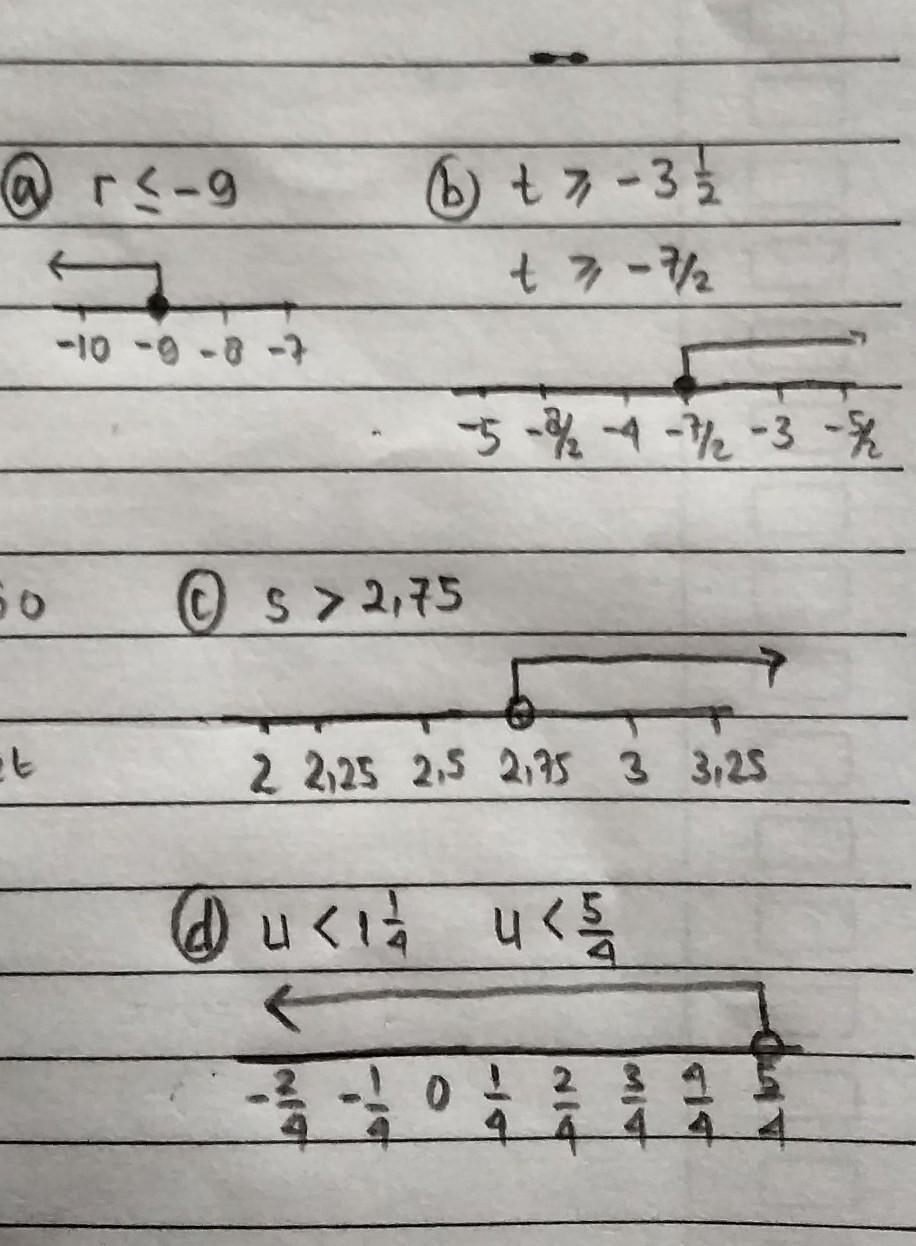 ⓐ r ≤ -9
ⓑ t ⩾ -3 1/2
t ⩾ -7/2
-10 -9 -8 -7
-5 -9/2 -4 -7/2 -3 -5/2
ⓒ s > 2,75
2 2,25 2,5 2,75 3 3,25
ⓓ u < 1 1/4 u < 5/4
-2/4 -1/4 0 1/4 2/4 3/4 4/4 5/4